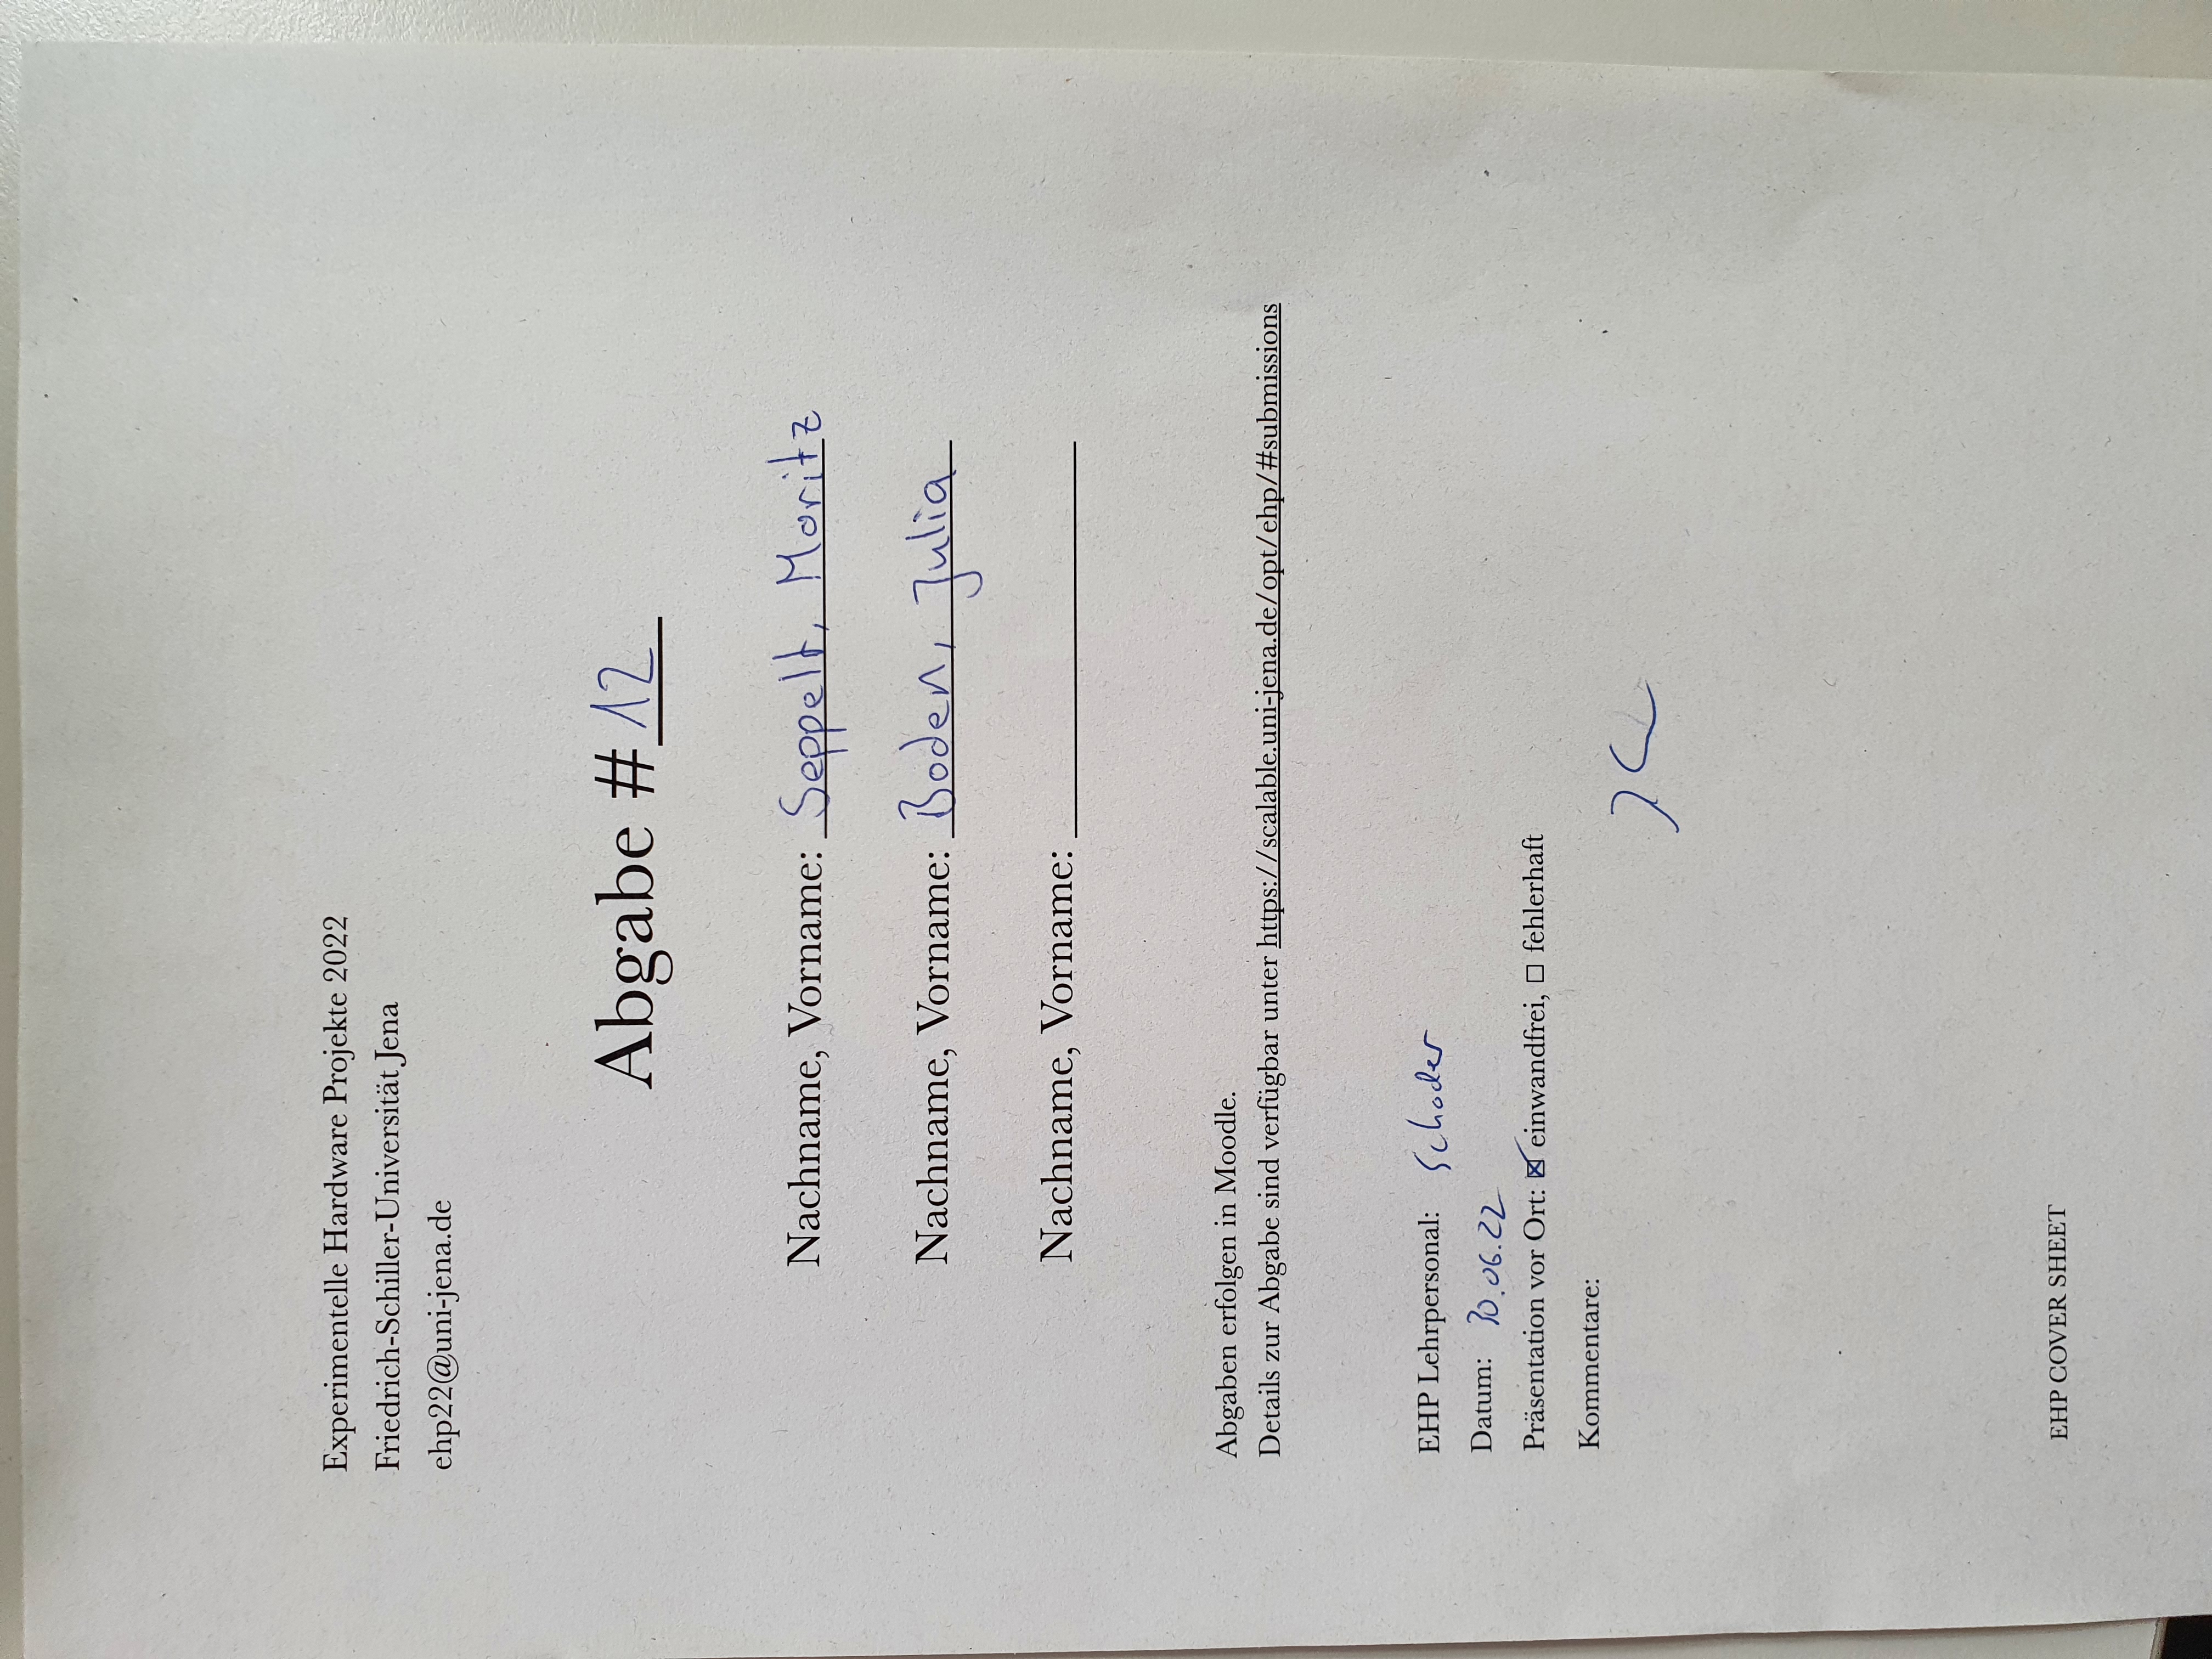 Experimentelle Hardware Projekte 2022
Friedrich-Schiller-Universität Jena
ehp22@uni-jena.de
Abgabe # 12
Nachname, Vorname: Seppelt, Moritz
Nachname, Vorname: Boden, Julia
Nachname, Vorname:
Abgaben erfolgen in Moodle.
Details zur Abgabe sind verfügbar unter https://scalable.uni-jena.de/opt/ehp/#submissions
EHP Lehrpersonal: Schoder
Datum: 30.06.22
Präsentation vor Ort: ☒ einwandfrei, ☐ fehlerhaft
Kommentare:
EHP COVER SHEET